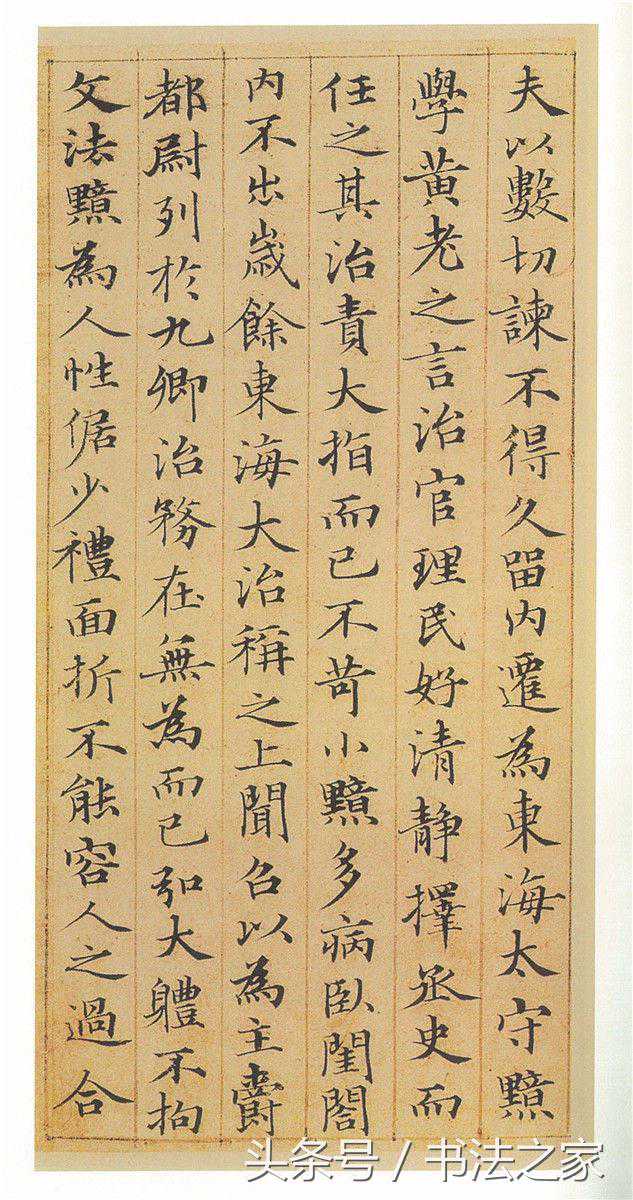 夫以數切諫不得久留内遷為東海太守黯
學黃老之言治官理民好清静擇丞史而
任之其治責大指而已不苛小黯多病臥閨閤
内不出歲餘東海大治稱之上聞召以為主爵
都尉列於九卿治務在無為而已弘大軆不拘
文法黯為人性倨少禮面折不能容人之過合
头条号 / 书法之家